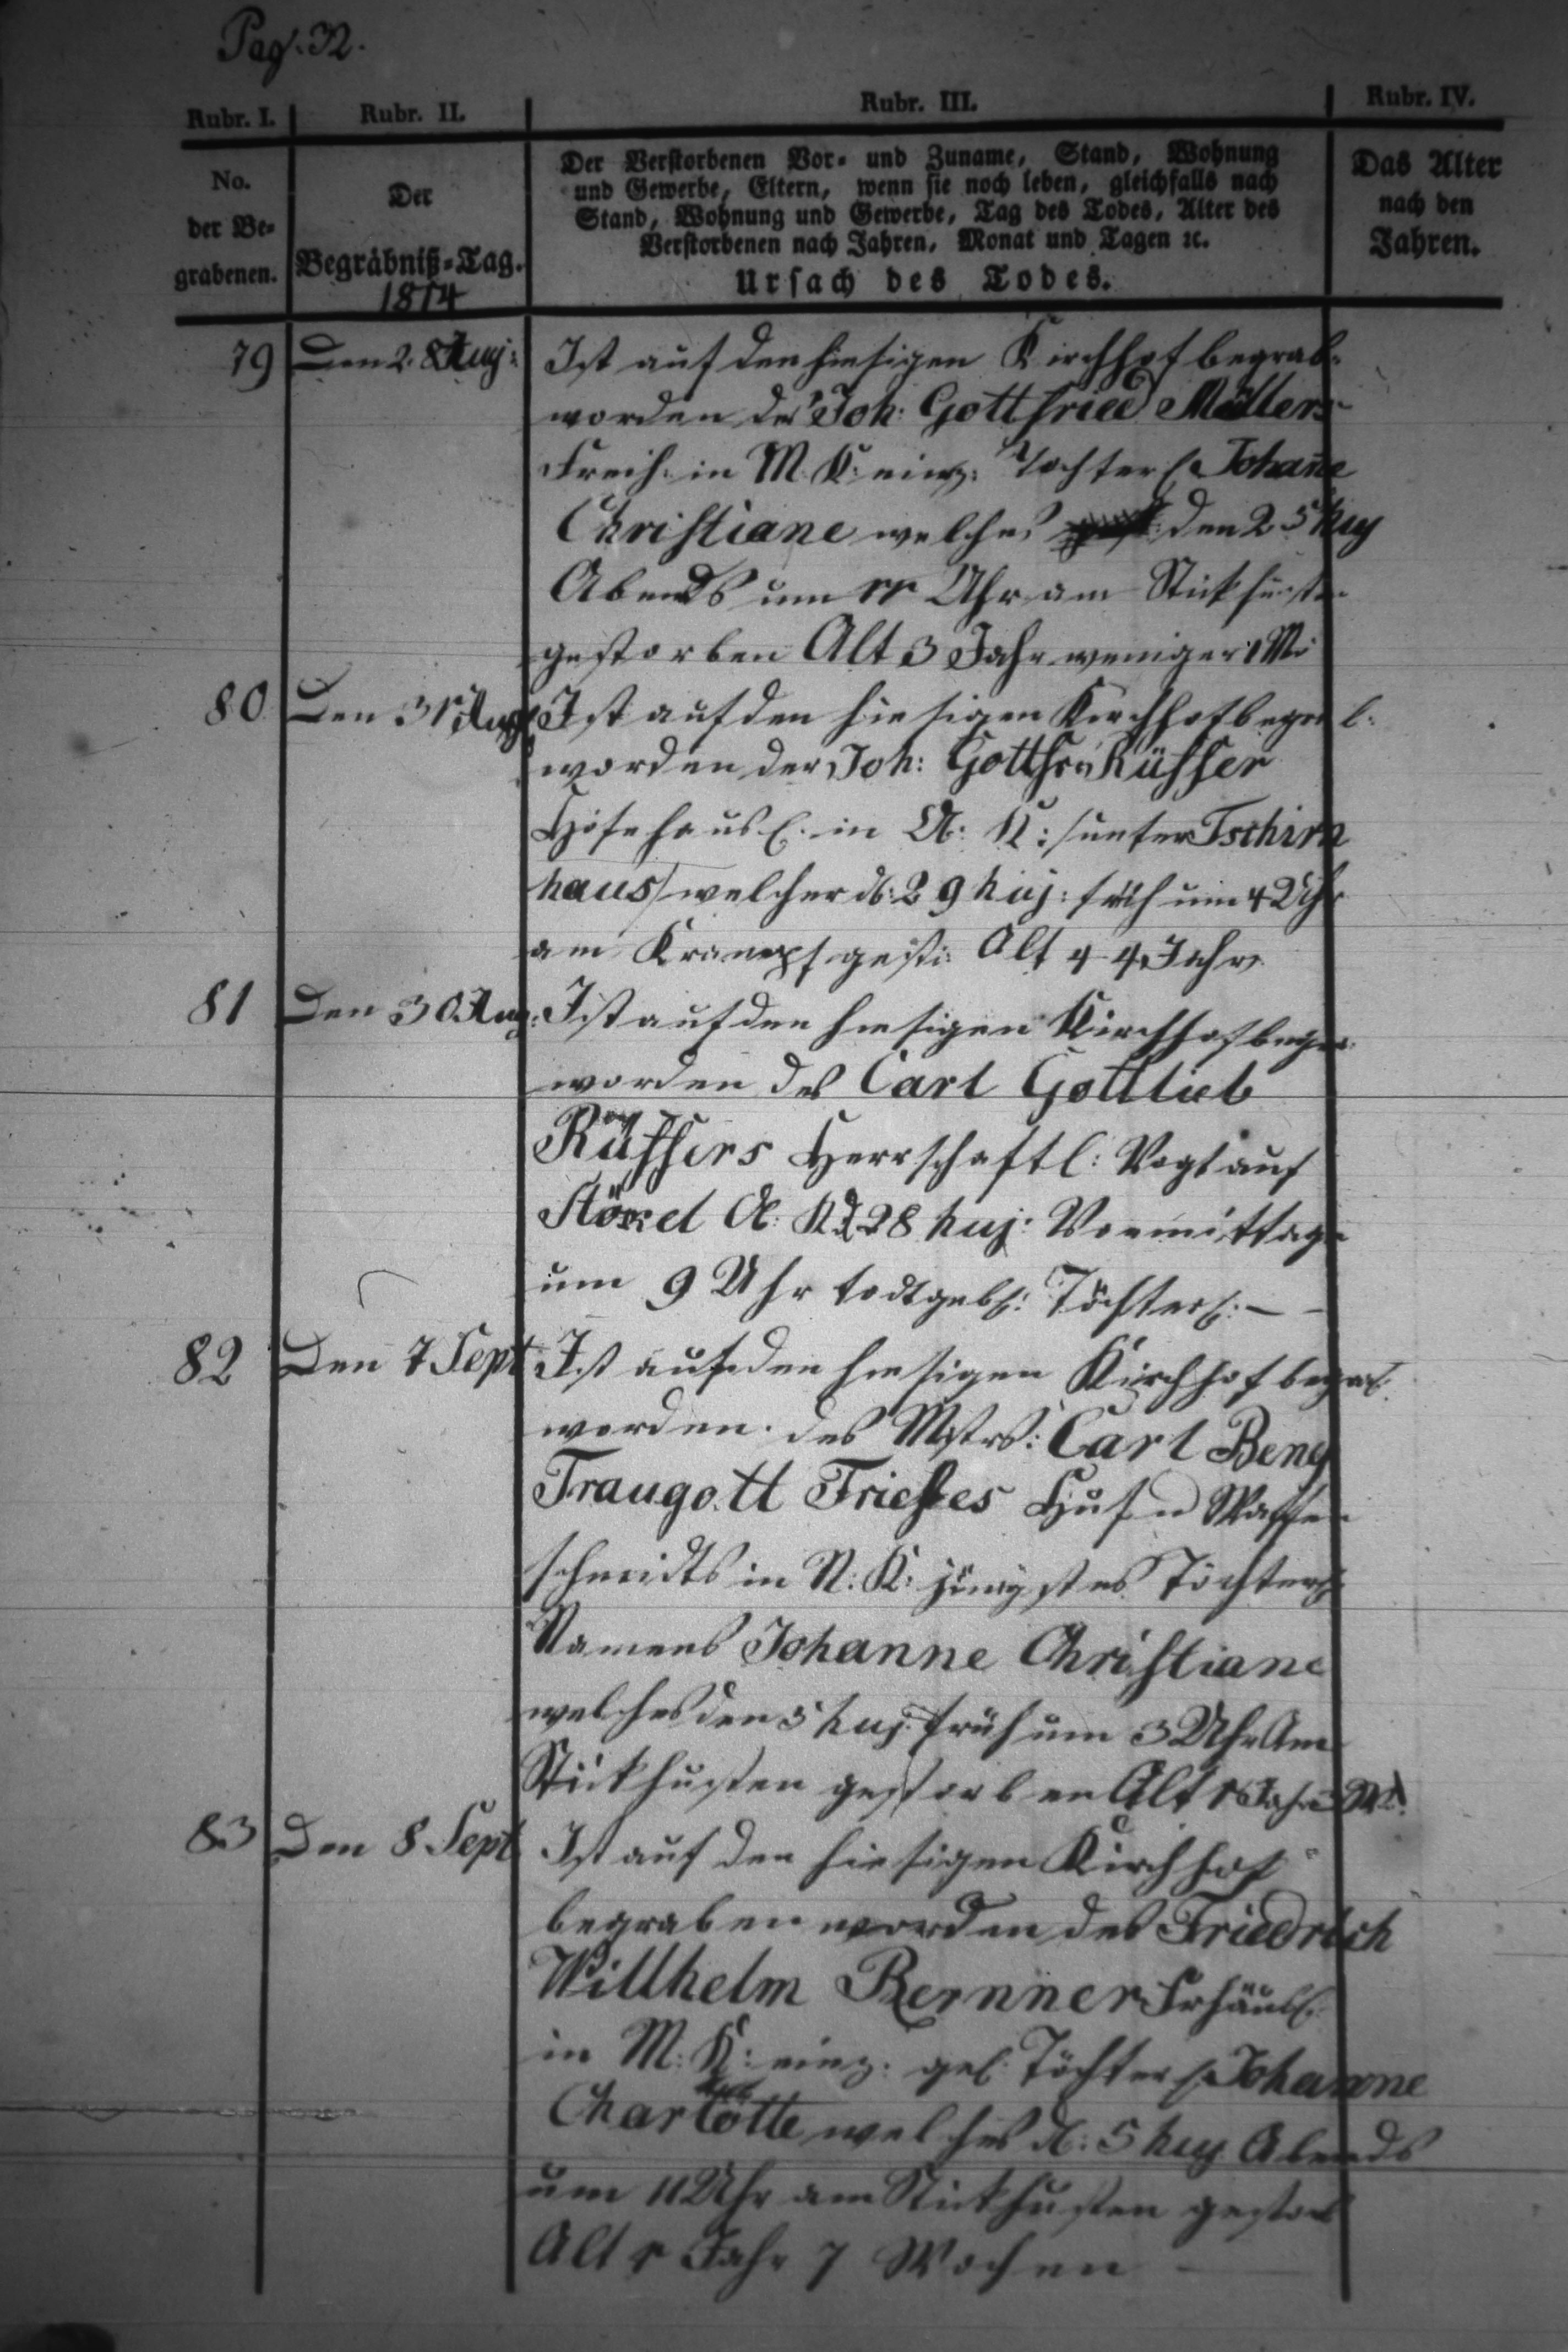 Pag. 32.
Rubr. I. Rubr. II. Rubr. III. Rubr. IV.
No.
der Be-
grabenen.
Der
Begräbniß-Tag.
1814
Der Verstorbenen Vor- und Zuname, Stand, Wohnung
und Gewerbe, Eltern, wenn sie noch leben, gleichfalls nach
Stand, Wohnung und Gewerbe, Tag des Todes, Alter des
Verstorbenen nach Jahren, Monat und Tagen ꝛc.
Ursach des Todes.
Das Alter
nach den
Jahren.
79 Den 28 Aug: Ist auf den hiesigen Kirchhof begrab:
worden des Joh: Gottfried Müllers
Freih: in M. K: einz: Tochterl. Johañe
Christiane welches den 25 huj
Abends um 11 Uhr am Stickhusten
gestorben Alt 3 Jahr weniger 1 Mo
80 Den 31 Aug Ist auf den hiesigen Kirchhof begrab:
worden der Joh: Gottfr: Küffer
Hofehäusl. in N: K: /unter Tschirn
haus/ welcher d: 29 huj: früh um 4 Uhr
am Krampf gest: Alt 44 Jahr
81 Den 30 Aug: Ist auf den hiesigen Kirchhof begra:
worden des Carl Gottlieb
Küffers Herrschaftl: Vogt auf
K d 28 huj: Vormittags
um 9 Uhr todtgeb: Töchterl: —
82 Den 7 Sept Ist auf den hiesigen Kirchhof begrab:
worden des Mstrs: Carl Benj
Traugott Frieses Huf u Waffen
schmidts in N: K: jüngstes Töchterl:
Namens Johanne Christiane
welches den 5 huj: früh um 3 Uhr Am
Stickhusten gestorben Alt Jahr 3 Mo.
83 Den 8 Sept Ist auf den hiesigen Kirchhof
begraben worden des Friedrich
Willhelm Bernner Frhäusl:
in M: K: einz: gel. Töchterl. Johanne
Charlotte welches d: 5 huj Abends
um 11 Uhr am Stickhusten gestorb
Alt 1 Jahr 7 Wochen —